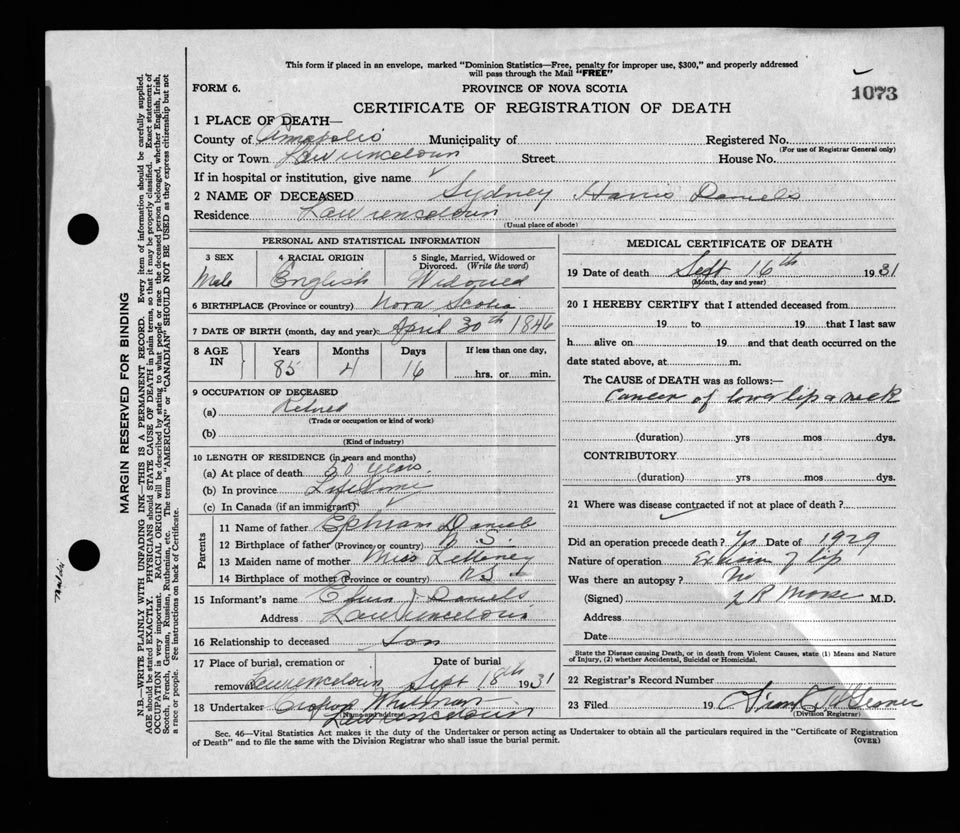 This form if placed in an envelope, marked "Dominion Statistics—Free, penalty for improper use, $300," and properly addressed
will pass through the Mail "FREE"
1073
FORM 6.
PROVINCE OF NOVA SCOTIA
CERTIFICATE OF REGISTRATION OF DEATH
1 PLACE OF DEATH—
County of Annapolis Municipality of Registered No.
(For use of Registrar General only)
City or Town Lawrencetown Street House No.
If in hospital or institution, give name
2 NAME OF DECEASED Sydney Harris Daniels
Residence Lawrencetown
(Usual place of abode)
PERSONAL AND STATISTICAL INFORMATION
3 SEX
Male
4 RACIAL ORIGIN
English
5 Single, Married, Widowed or
Divorced. (Write the word)
Widowed
6 BIRTHPLACE (Province or country) Nova Scotia
7 DATE OF BIRTH (month, day and year): April 30th 1846
8 AGE
IN
Years
85
Months
4
Days
16
If less than one day,
hrs. or min.
9 OCCUPATION OF DECEASED
(a) Retired
(Trade or occupation or kind of work)
(b)
(Kind of industry)
10 LENGTH OF RESIDENCE (in years and months)
(a) At place of death years.
(b) In province Life time
(c) In Canada (if an immigrant)
Parents
11 Name of father Ephram Daniels
12 Birthplace of father (Province or country) N.S.
13 Maiden name of mother Miss
14 Birthplace of mother (Province or country) N.S
15 Informant's name J Daniels
Address Lawrencetown
16 Relationship to deceased Son
17 Place of burial, cremation or Date of burial
removal Lawrencetown Sept 18th 1931
18 Undertaker Crofton Whitman
(Name and address)
Lawrencetown
MEDICAL CERTIFICATE OF DEATH
19 Date of death Sept 16th 1931
(Month, day and year)
20 I HEREBY CERTIFY that I attended deceased from
19 to 19 that I last saw
h alive on 19 and that death occurred on the
date stated above, at m.
The CAUSE of DEATH was as follows:—
Cancer of lower lip & neck
(duration) yrs mos dys.
CONTRIBUTORY
(duration) yrs mos dys.
21 Where was disease contracted if not at place of death?
Did an operation precede death? Yes Date of 1929
Nature of operation Excision of lip
Was there an autopsy? No
(Signed) L R Morse M.D.
Address
Date
State the Disease causing Death, or in death from Violent Causes, state (1) Means and Nature
of Injury, (2) whether Accidental, Suicidal or Homicidal.
22 Registrar's Record Number
23 Filed 19
(Division Registrar)
Sec. 46—Vital Statistics Act makes it the duty of the Undertaker or Person acting as Undertaker to obtain all the particulars required in the "Certificate of Registration
of Death" and to file the same with the Division Registrar who shall issue the burial permit.
(OVER)
MARGIN RESERVED FOR BINDING
N.B.—WRITE PLAINLY WITH UNFADING INK—THIS IS A PERMANENT RECORD. Every item of information should be carefully supplied.
AGE should be stated EXACTLY. PHYSICIANS should STATE CAUSE OF DEATH in plain terms, so that it may be properly classified. Exact statement of
OCCUPATION is very important. RACIAL ORIGIN will be described by stating to what people or race the deceased person belonged, whether English, Irish,
Scotch, French, German, Russian, Ruthenian, etc. The terms "AMERICAN" or "CANADIAN" SHOULD NOT BE USED as they express citizenship but not
a race or people. Fee instructions on back of Certificate.